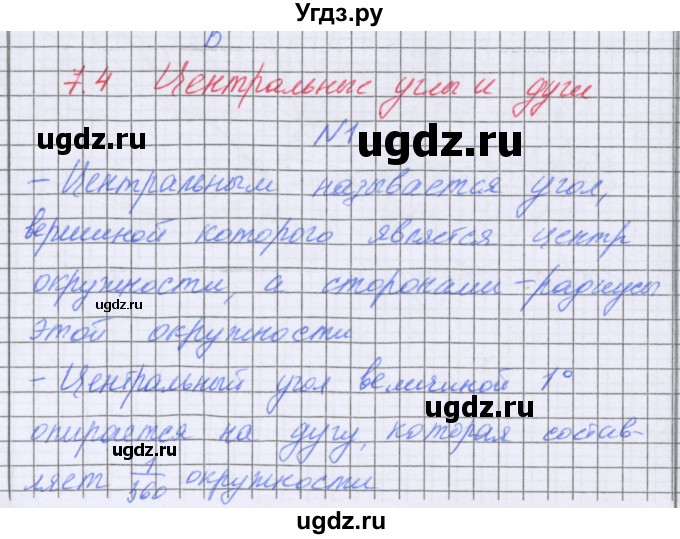 Угдз.ру
7.4 Центральные углы и дуги
N1
ugdz.ru
ugdz.ru
– Центральным называется угол,
вершиной которого является центр
ugdz.ru
окружности, а сторонами – радиусы
ugdz.ru
этой окружности
– Центральный угол величиной 1°
ugdz.ru
опирается на дугу, которая состав-
ugdz.ru
ляет 1/360 окружности
ugdz.ru
ugdz.ru